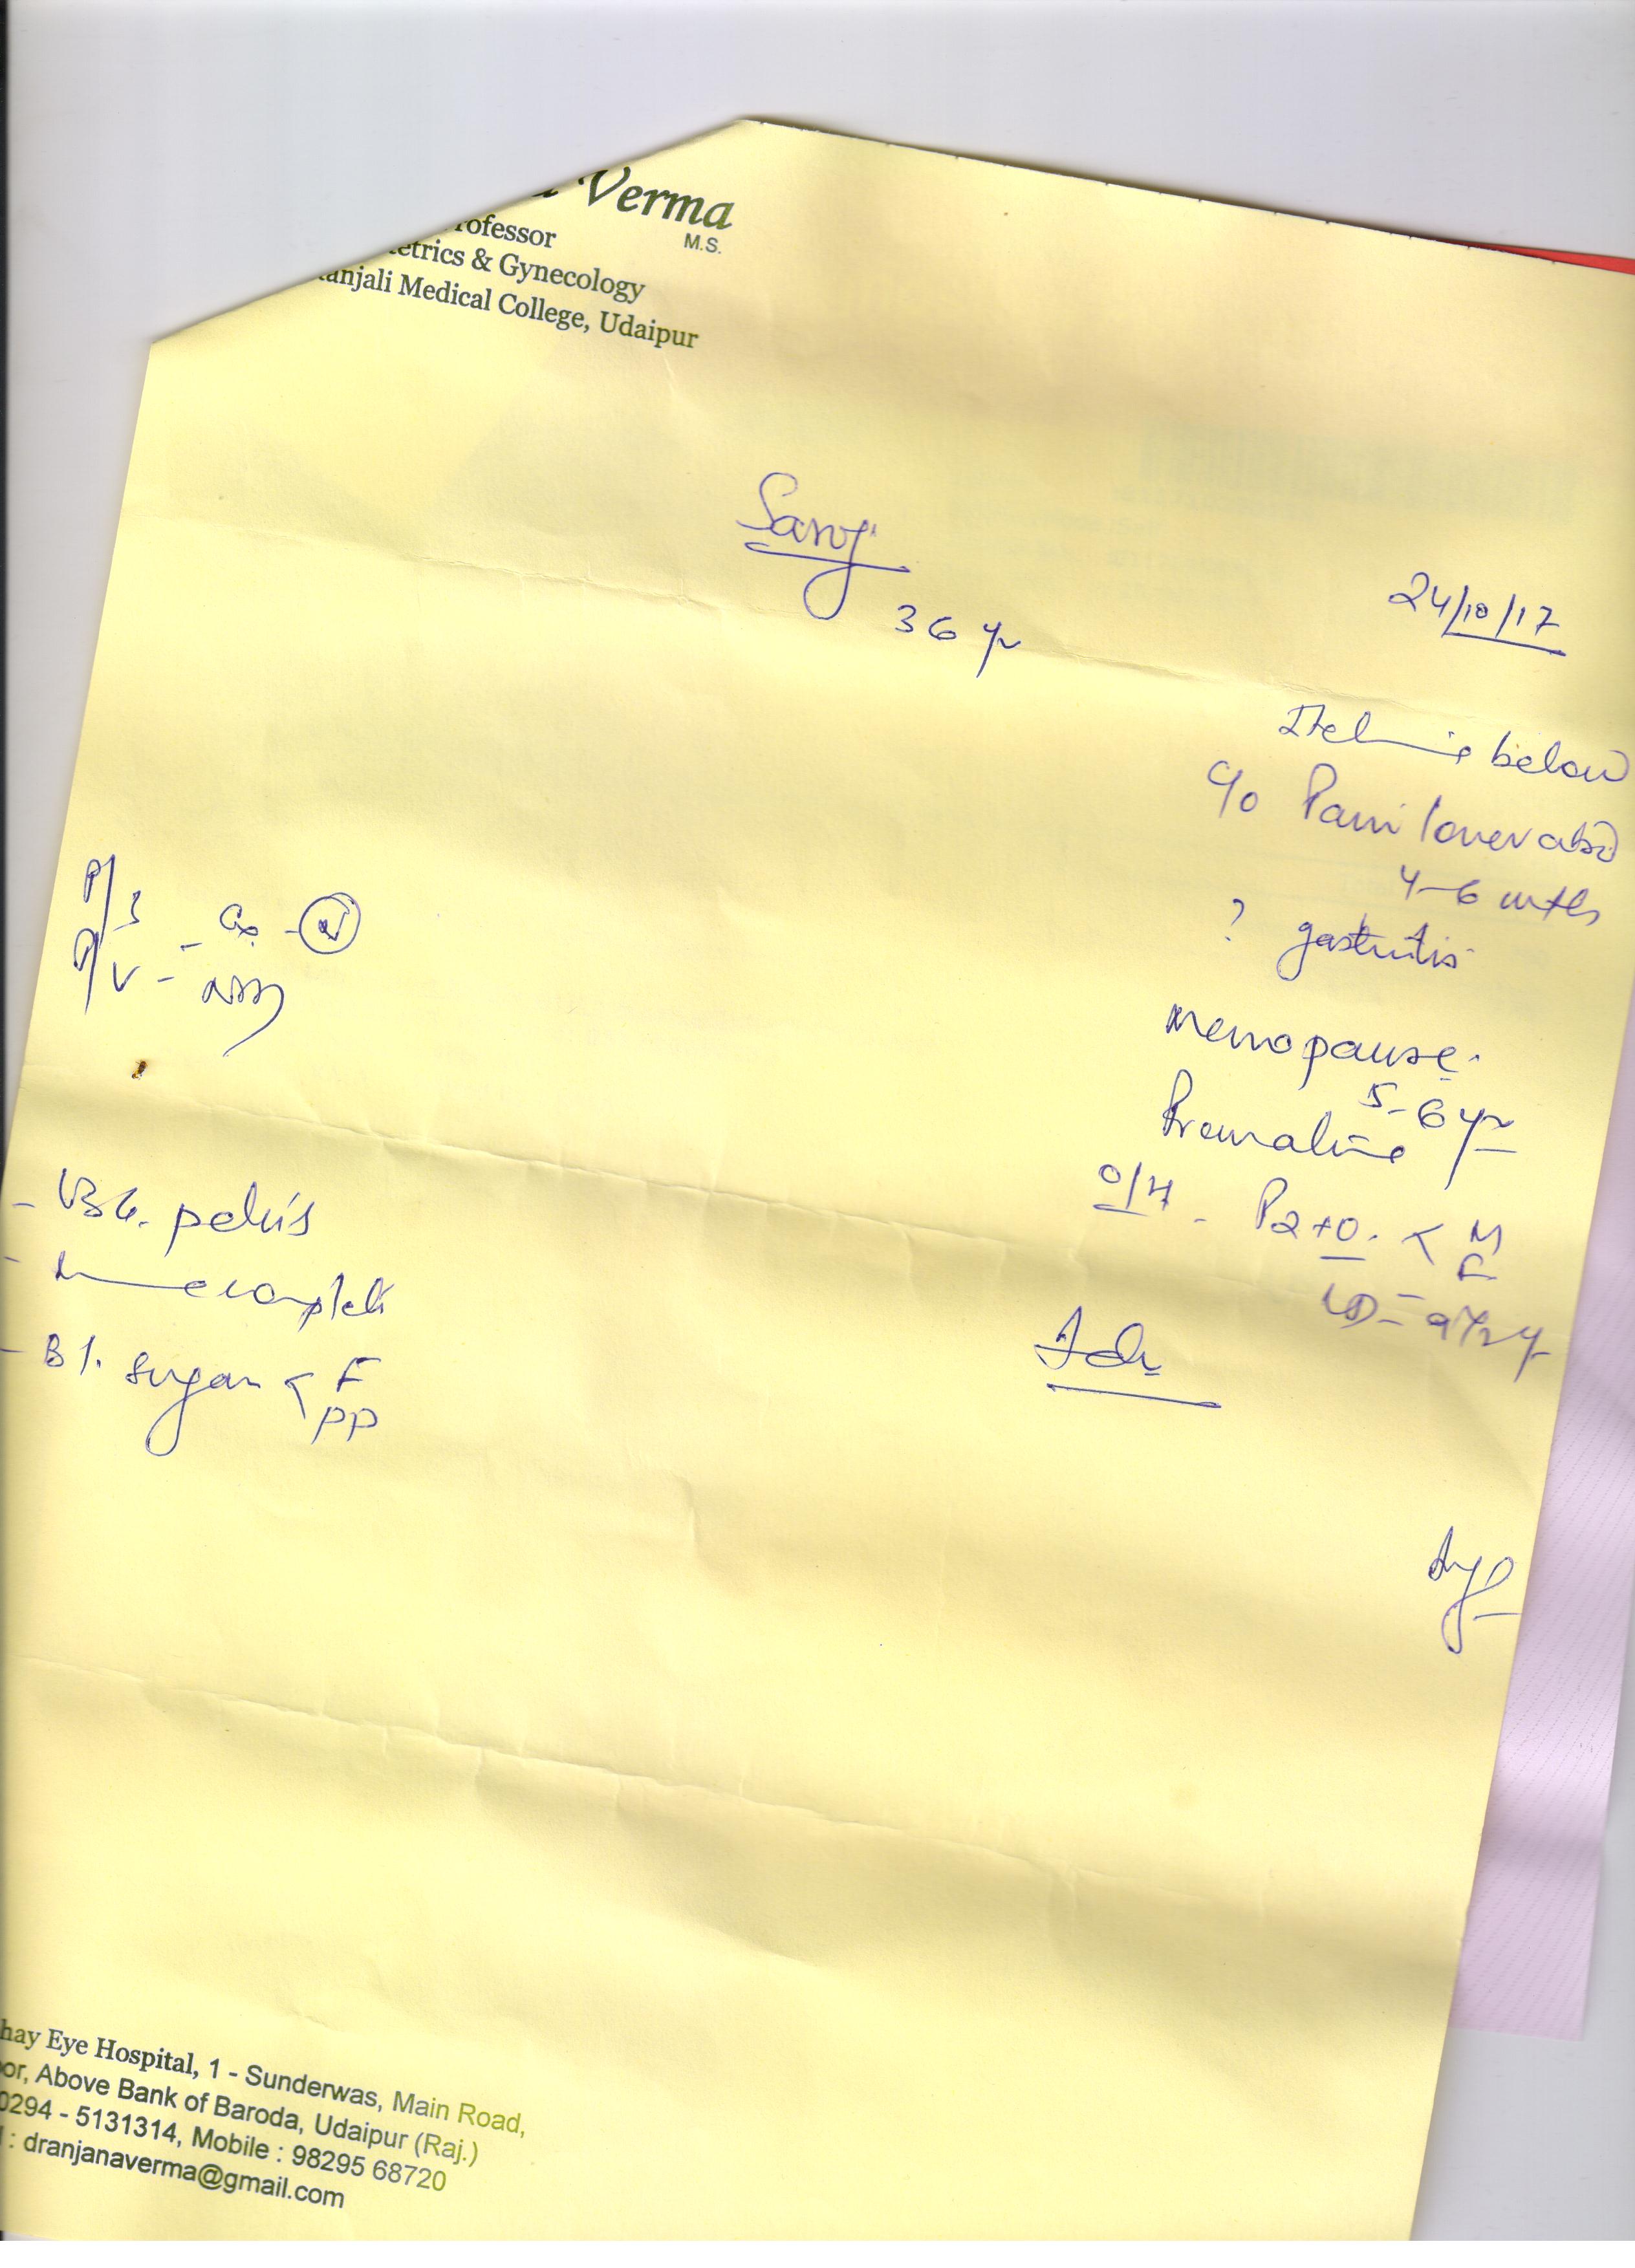 Verma
M.S.
rofessor
etrics & Gynecology
tanjali Medical College, Udaipur
Saroj
36 yr
24/10/17
below
c/o Pain lower abd
4-6 mths
? gastritis
Menopause.
5-6 yr
O/H - P2+0. < M
F
LD = 9 1/2 y
P/S - Cx - N
P/V -
- USG. pelvis
- Urine complete
- Bl. sugar < F
PP
Adv
hay Eye Hospital, 1 - Sunderwas, Main Road,
oor, Above Bank of Baroda, Udaipur (Raj.)
0294 - 5131314, Mobile : 98295 68720
l : dranjanaverma@gmail.com